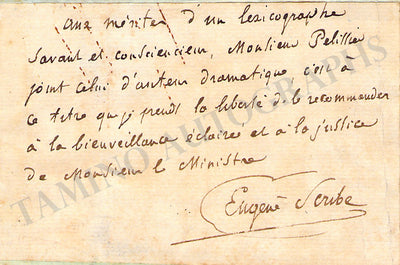 aux mérites d'un lexicographe
savant et consciencieux, Monsieur Pelissier
joint celui d'auteur dramatique c'est à
ce titre que je prends la liberté de le recommander
à la bienveillance éclairée et à la justice
de Monsieur le Ministre
Eugène Scribe
TAMINO AUTOGRAPHS